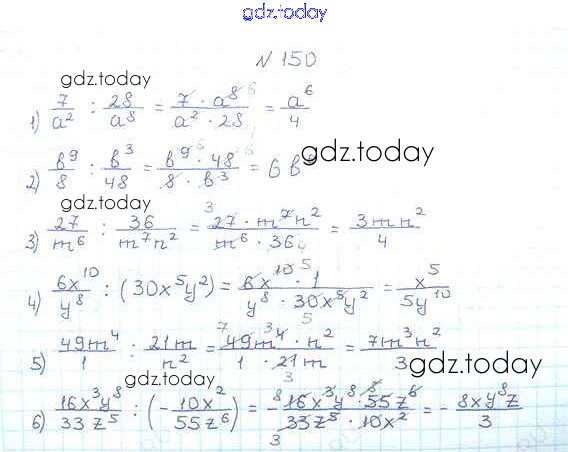 gdz.today
N 150
gdz.today
1) 7/a² : 28/a⁸ = 7 · a⁸ ⁶/a² · 28 = a⁶/4
gdz.today
2) в⁹/8 : в³/48 = в⁹ · 48 ⁶/8 · в³ = 6 в⁶
gdz.today
3) 27/m⁶ : 36/m⁷n² = ³ 27 · m⁷n²/m⁶ · 36 4 = 3mn²/4
4) 6x¹⁰/y⁸ : (30x⁵y²) = 6x¹⁰ ⁵ · 1/y⁸ · 30x⁵y² = x⁵/5y¹⁰
5) 49m⁴/1 : 21m/n² = ⁷ 49m⁴ ³ · n²/1 · 21m 3 = 7m³n²/3
gdz.today
6) 16x³y⁸/33z⁵ : (-10x²/55z⁶) = - ⁸ 16x³y⁸ · 55z⁶/33z⁵ · 10x² 3 = - 8xy⁸z/3